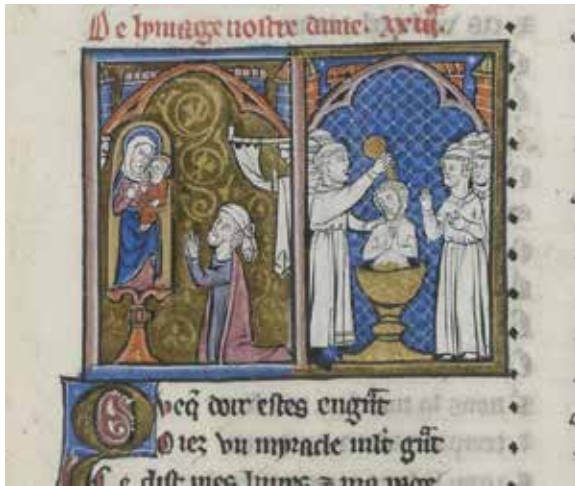 De lymage nostre dame. xxiii.
doir estes engrãt
Oiez vn myracle mlt grãt
Ce dist mes liures ⁊ ma page